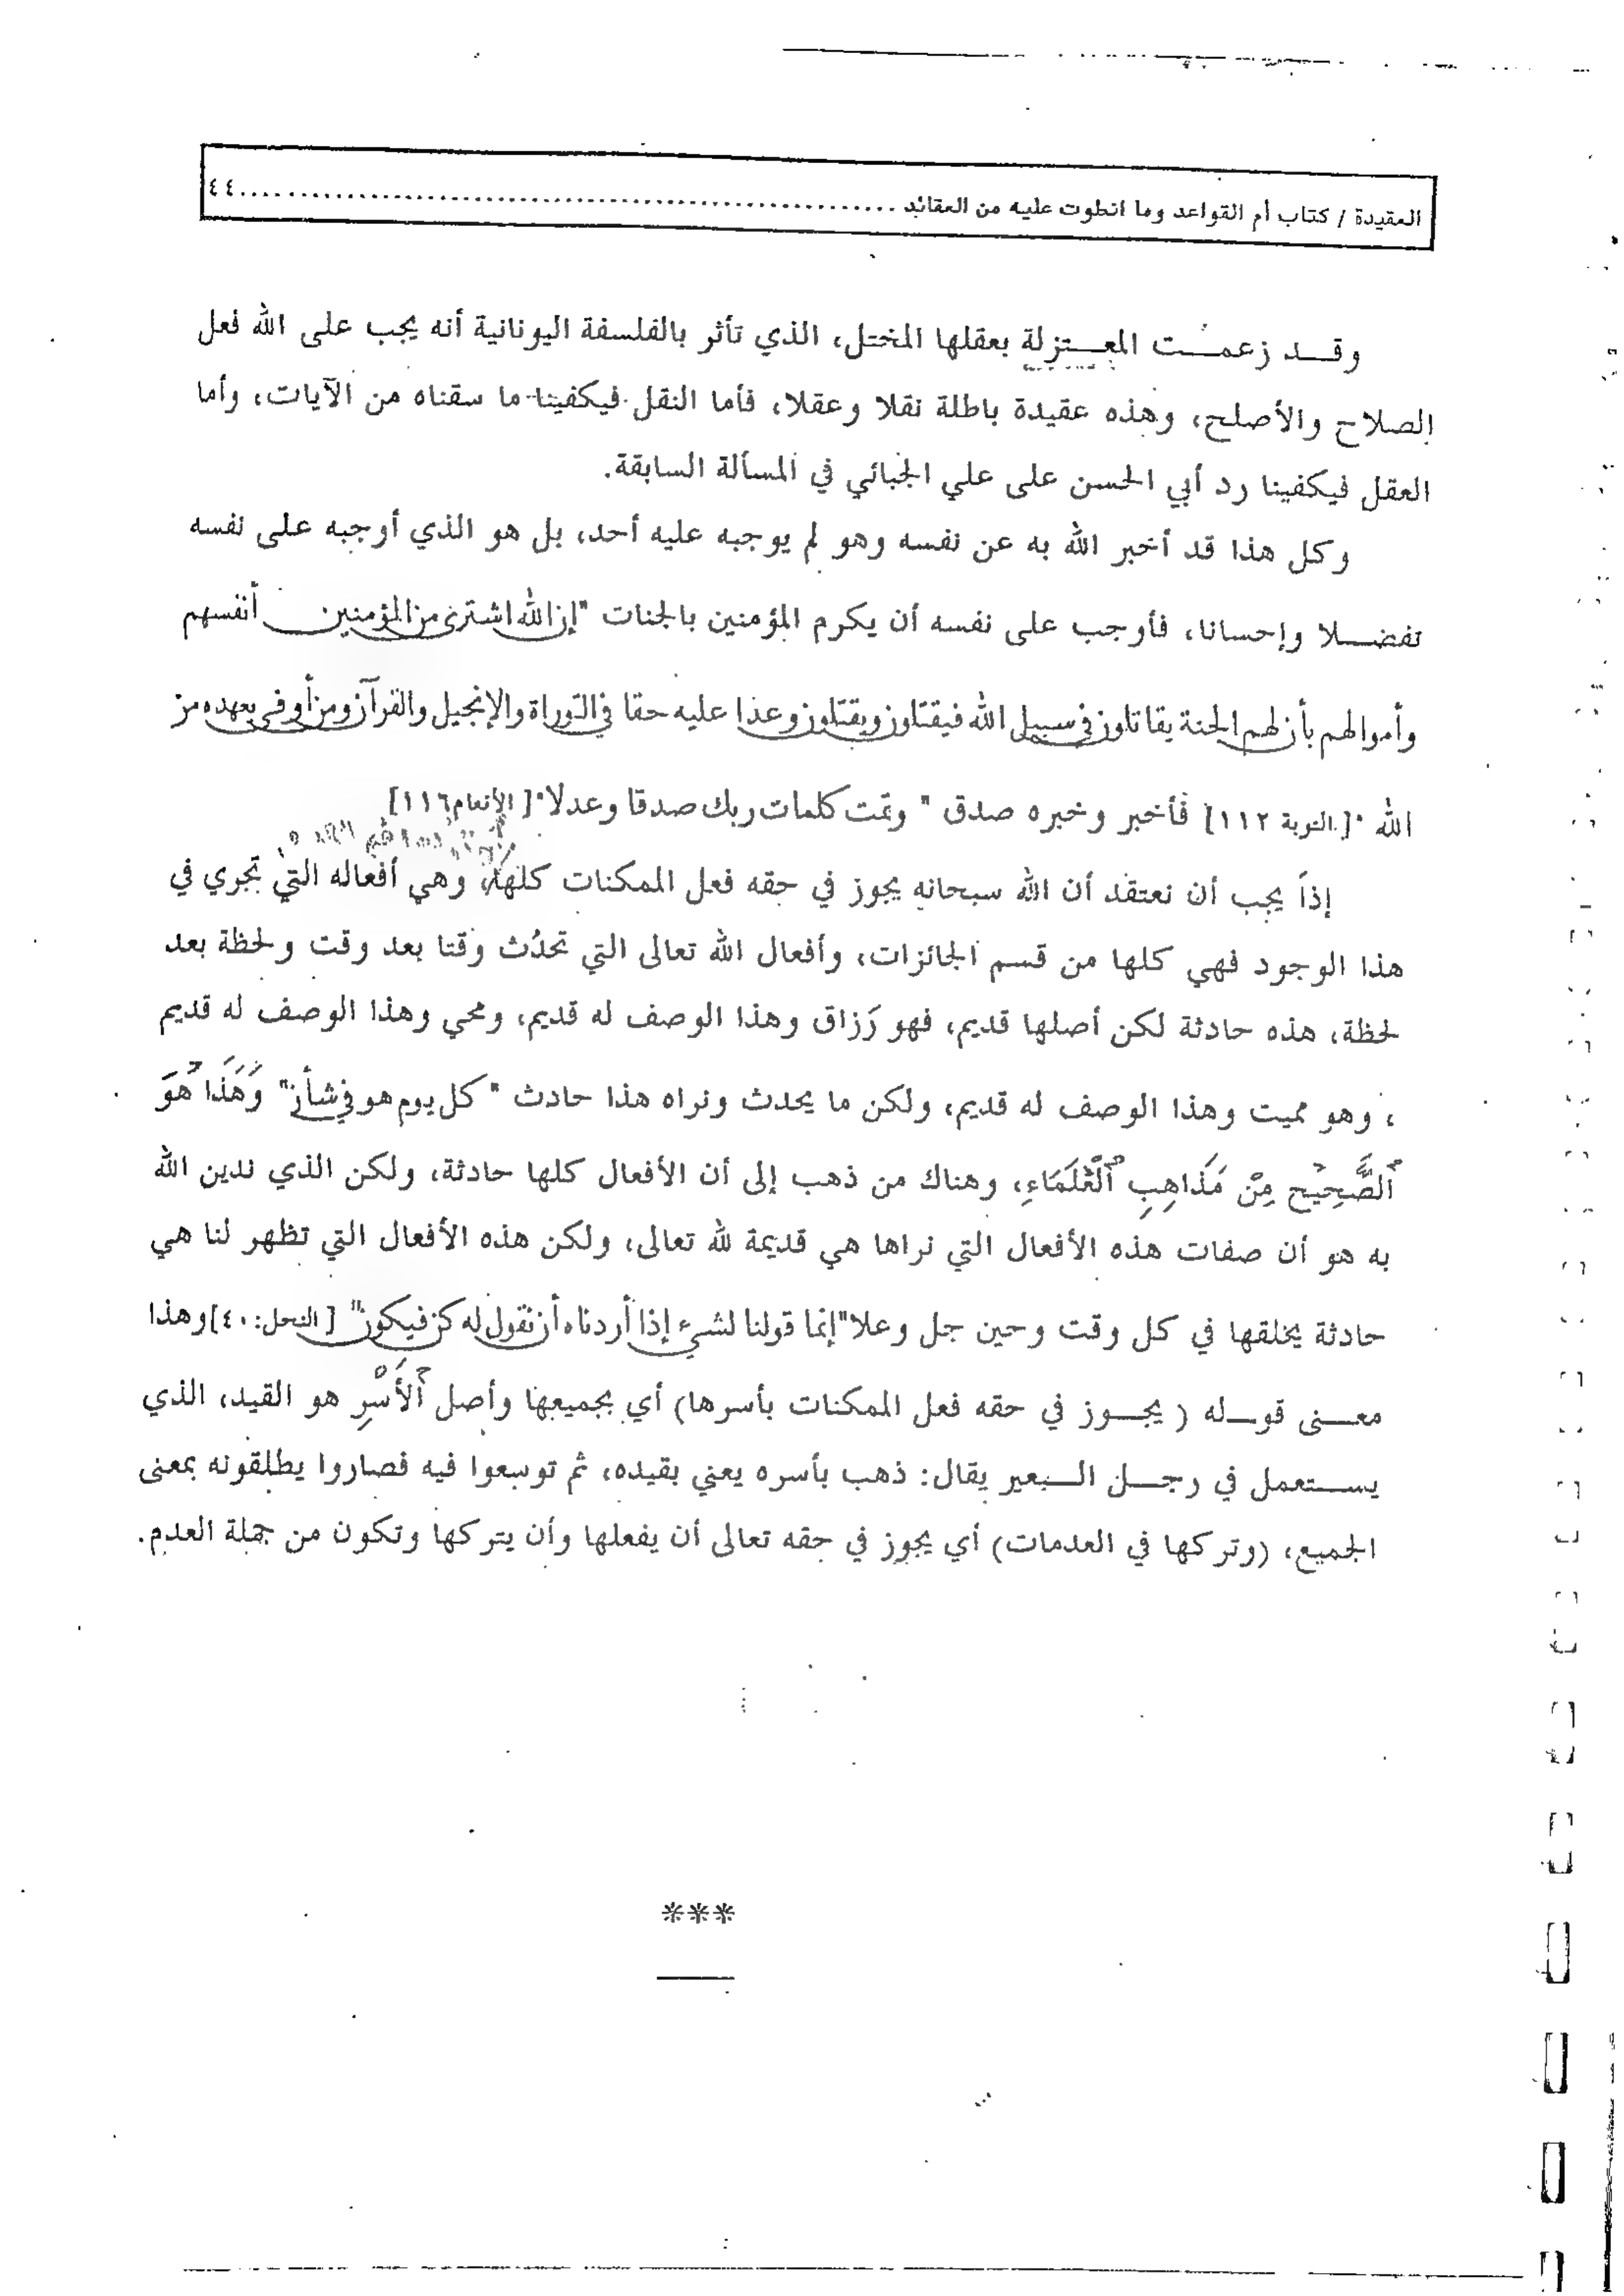 العقيدة / كتاب أم القواعد وما انطوت عليه من العقائد ................................................ ٤٤
وقد زعمت المعتزلة بعقلها المختل، الذي تأثر بالفلسفة اليونانية أنه يجب على الله فعل
الصلاح والأصلح، وهذه عقيدة باطلة نقلا وعقلا، فأما النقل فيكفينا ما سقناه من الآيات، وأما
العقل فيكفينا رد أبي الحسن على علي الجبائي في المسألة السابقة.
وكل هذا قد أخبر الله به عن نفسه وهو لم يوجبه عليه أحد، بل هو الذي أوجبه على نفسه
تفضلا وإحسانا، فأوجب على نفسه أن يكرم المؤمنين بالجنات "إن الله اشترى من المؤمنين أنفسهم
وأموالهم بأن لهم الجنة يقاتلون في سبيل الله فيقتلون ويقتلون وعدا عليه حقا في التوراة والإنجيل والقرآن ومن أوفى بعهده من
الله "[التوبة ١١٢] فأخبر وخبره صدق " وتمت كلمات ربك صدقا وعدلا"[الإنعام١١٦]
إذاً يجب أن نعتقد أن الله سبحانه يجوز في حقه فعل الممكنات كلها، وهي أفعاله التي تجري في
هذا الوجود فهي كلها من قسم الجائزات، وأفعال الله تعالى التي تحدُث وقتا بعد وقت ولحظة بعد
لحظة، هذه حادثة لكن أصلها قديم، فهو رَزاق وهذا الوصف له قديم، ومحي وهذا الوصف له قديم
، وهو مميت وهذا الوصف له قديم، ولكن ما يحدث ونراه هذا حادث " كل يوم هو في شأن" وَهَذَا هُوَ
ٱلصَّحِيْح مِنْ مَذَاهِبِ ٱلْعُلَمَاءِ، وهناك من ذهب إلى أن الأفعال كلها حادثة، ولكن الذي ندين الله
به هو أن صفات هذه الأفعال التي نراها هي قديمة لله تعالى، ولكن هذه الأفعال التي تظهر لنا هي
حادثة يخلقها في كل وقت وحين جل وعلا"إنما قولنا لشيء إذا أردناه أن نقول له كن فيكون" [النحل:٤٠]وهذا
معنى قوله ( يجوز في حقه فعل الممكنات بأسرها) أي بجميعها وأصل ٱلأَسْرِ هو القيد، الذي
يستعمل في رجل البعير يقال: ذهب بأسره يعني بقيده، ثم توسعوا فيه فصاروا يطلقونه بمعنى
الجميع، (وتركها في العدمات) أي يجوز في حقه تعالى أن يفعلها وأن يتركها وتكون من جملة العدم.
***